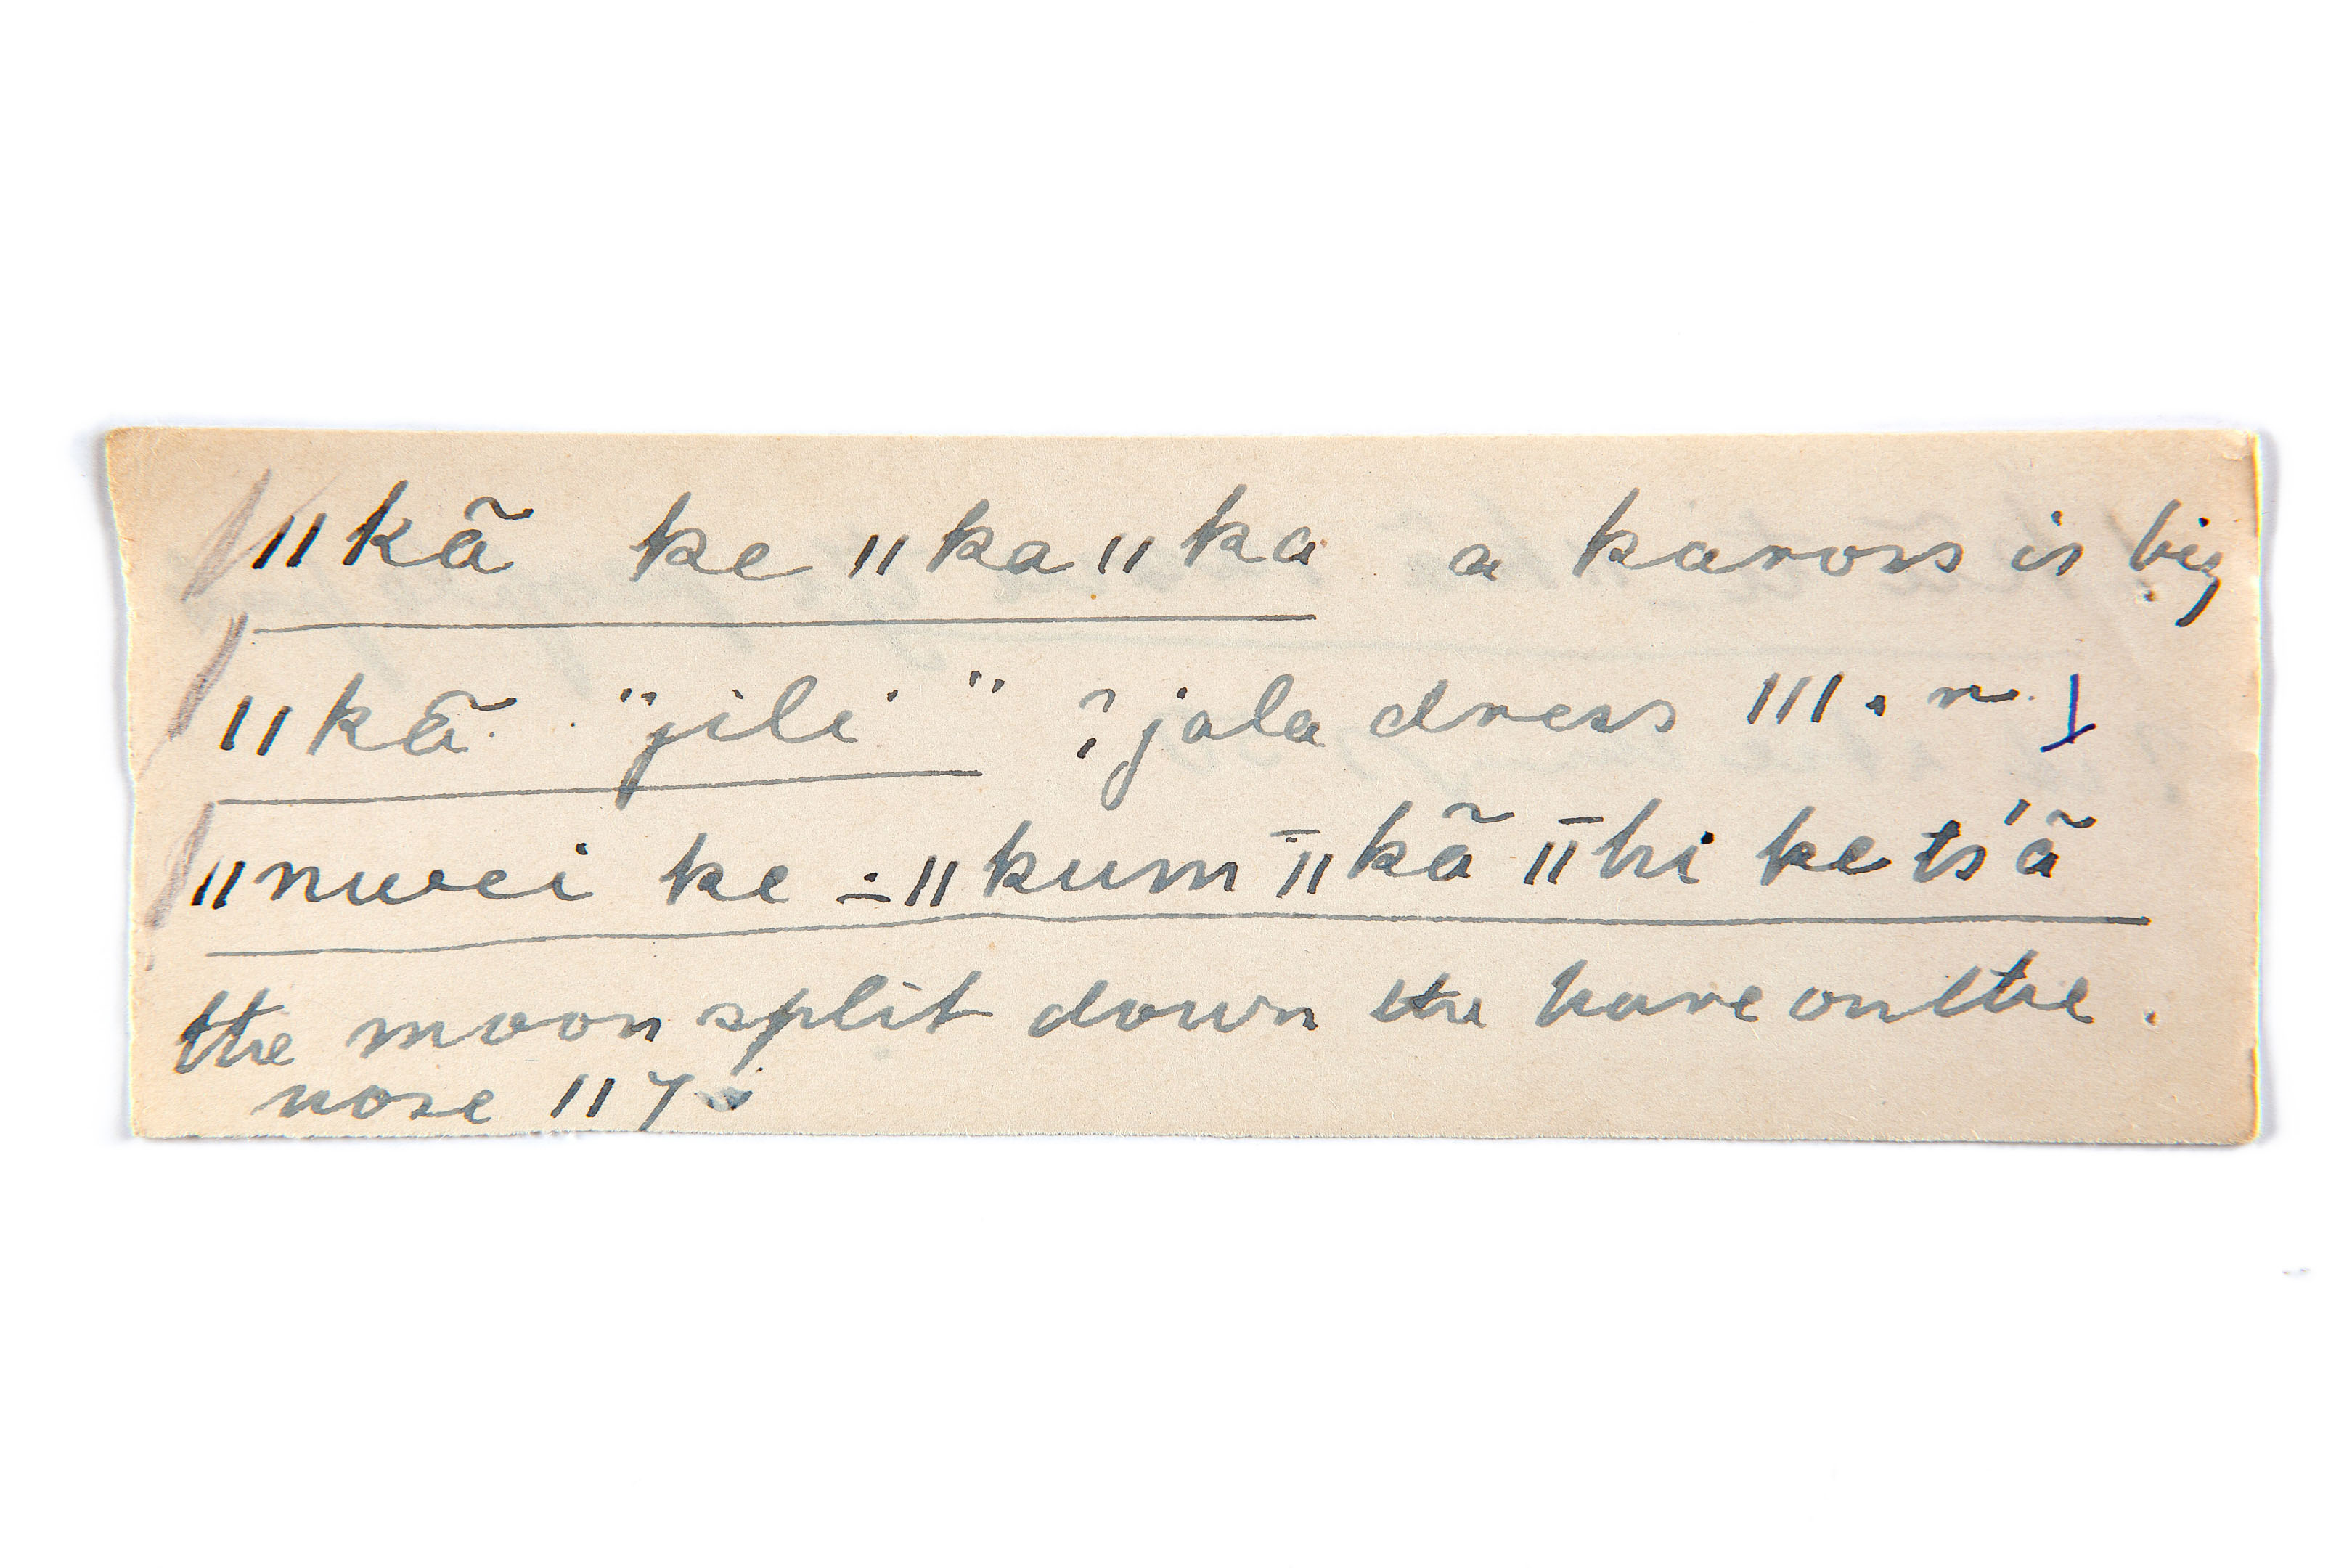 ǁkã ke ǁkaǁka a kaross is big
ǁkã "jili" ? jala dress III. n.
ǁnwei ke ÷ǁkum ǁkã ǁhi ke ts'ã
the moon split down the hare on the.
nose II 7